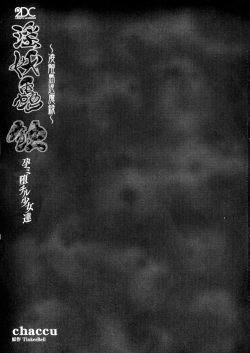 2DC
淫妖蟲 蝕
～凌触霊退魔録～
孕ミ堕チル少女達
chaccu
原作 TinkerBell